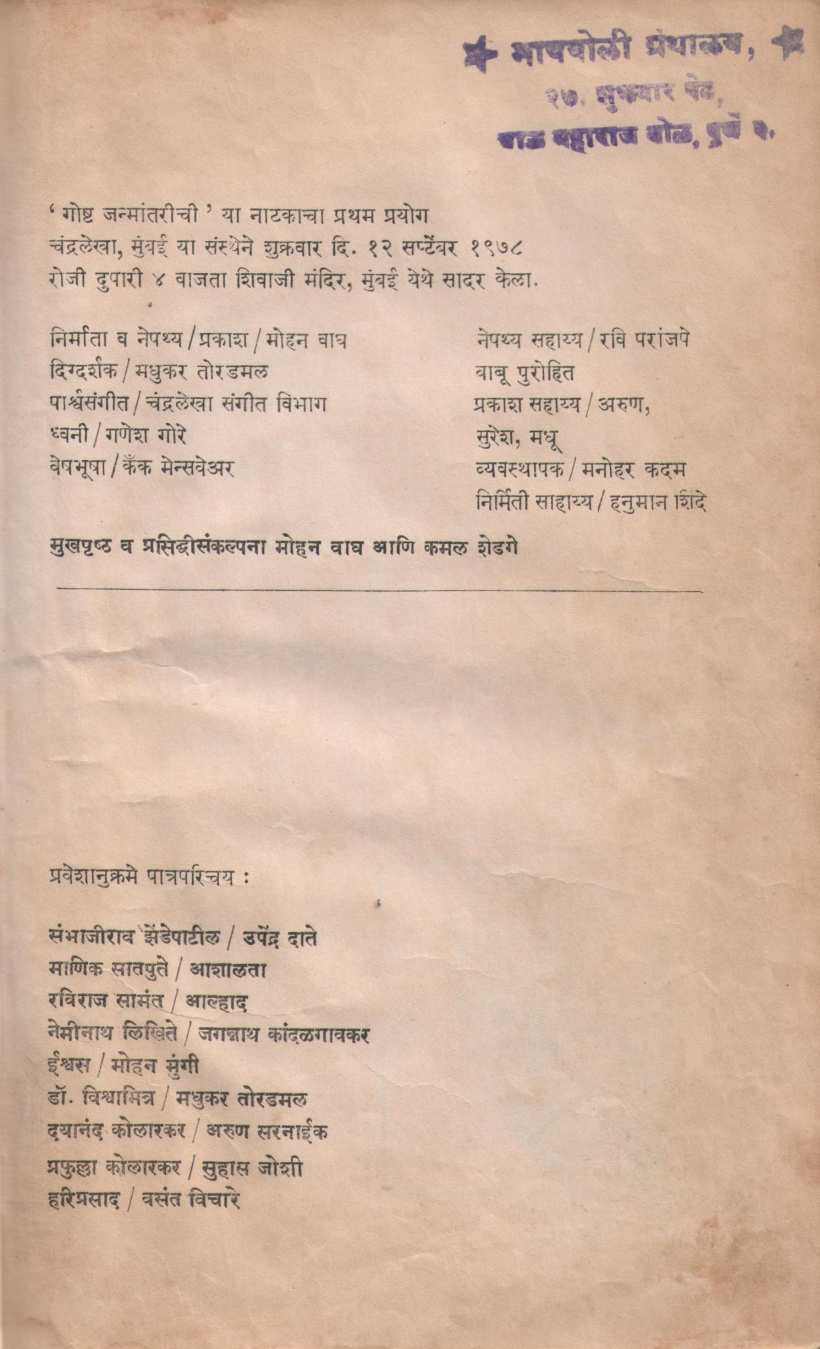 मायबोली ग्रंथालय,
२७, शुक्रवार पेठ,
बाळ महाराज बोळ, पुणें २.
‘ गोष्ट जन्मांतरीची ’ या नाटकाचा प्रथम प्रयोग
चंद्रलेखा, मुंबई या संस्थेने शुक्रवार दि. १२ सप्टेंबर १९७८
रोजी दुपारी ४ वाजता शिवाजी मंदिर, मुंबई येथे सादर केला.
निर्माता व नेपथ्य/प्रकाश/मोहन वाघ
दिग्दर्शक/मधुकर तोरडमल
पार्श्वसंगीत/चंद्रलेखा संगीत विभाग
ध्वनी/गणेश गोरे
वेषभूषा/कँक मेन्सवेअर
नेपथ्य सहाय्य/रवि परांजपे
बाबू पुरोहित
प्रकाश सहाय्य/अरुण,
सुरेश, मधू
व्यवस्थापक/मनोहर कदम
निर्मिती साहाय्य/हनुमान शिंदे
मुखपृष्ठ व प्रसिद्धीसंकल्पना मोहन वाघ आणि कमल शेडगे
प्रवेशानुक्रमे पात्रपरिचय :
संभाजीराव झेंडेपाटील / उपेंद्र दाते
माणिक सातपुते / आशालता
रविराज सामंत / आल्हाद
नेमीनाथ लिखिते / जगन्नाथ कांदळगावकर
ईश्वस / मोहन मुंगी
डॉ. विश्वामित्र / मधुकर तोरडमल
दयानंद कोलारकर / अरुण सरनाईक
प्रफुल्ला कोलारकर / सुहास जोशी
हरिप्रसाद / वसंत विचारे